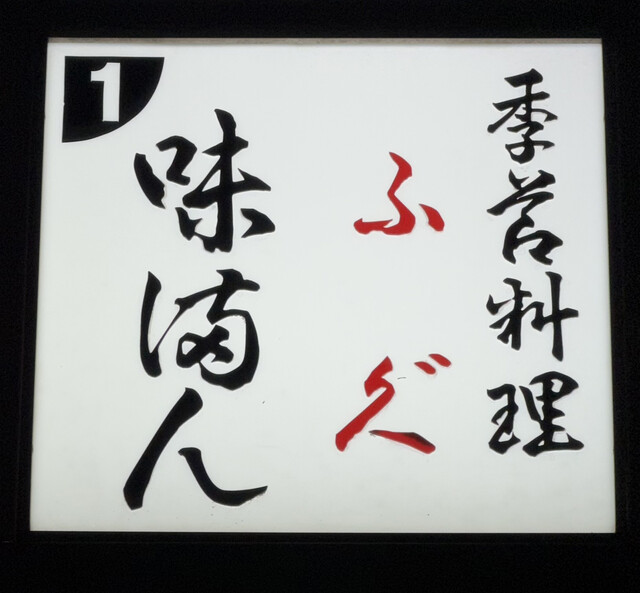 1
季節料理
ふぐ
味満ん